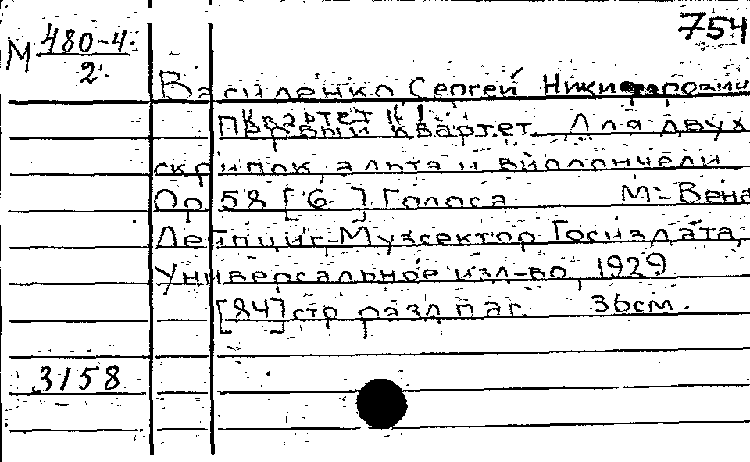 754
М 480-4
2
Василенко Сергей Никифорович
Квартет № 1
Первый квартет. Для двух
скрипок, альта и виолончели
Op 58 [6] Голоса М.-Вена
Лейпциг-Музсектор Госиздата,
Универсальное изд-во, 1929
[84] стр разд паг. 36см.
3158